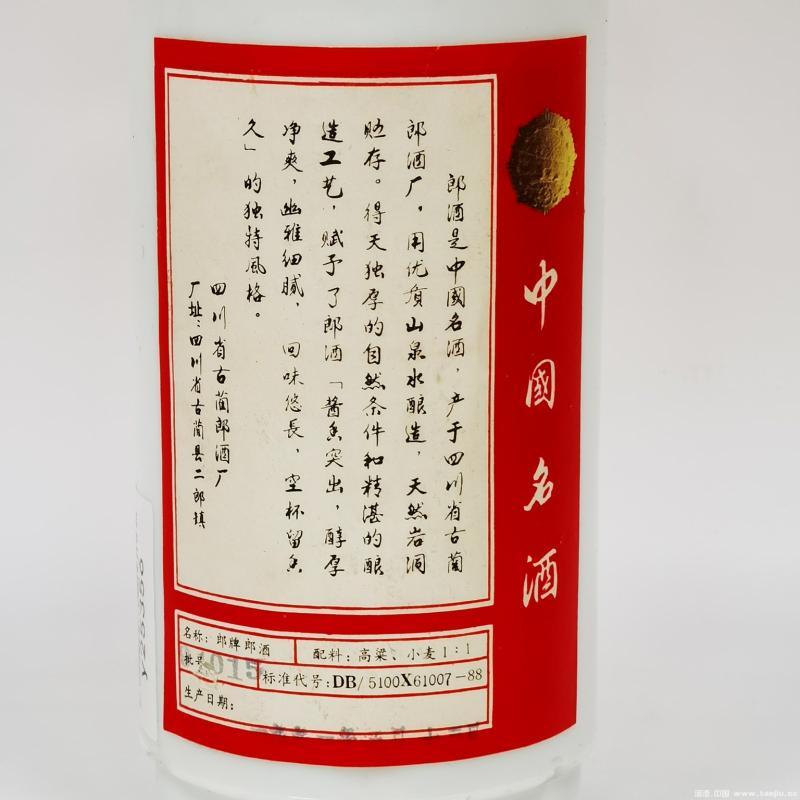 郎酒是中國名酒，产于四川省古蔺
郎酒厂，用优质山泉水酿造，天然岩洞
贮存。得天独厚的自然条件和精湛的酿
造工艺，赋予了郎酒「酱香突出，醇厚
净爽，幽雅细腻，回味悠長，空杯留香
久」的独特風格。
四川省古蔺郎酒厂
厂址：四川省古蔺县二郎镇
中國名酒
名称：郎牌郎酒
配料：高粱、小麦1：1
批号
标准代号：DB/5100X61007-88
生产日期：
www.taojiu.cc